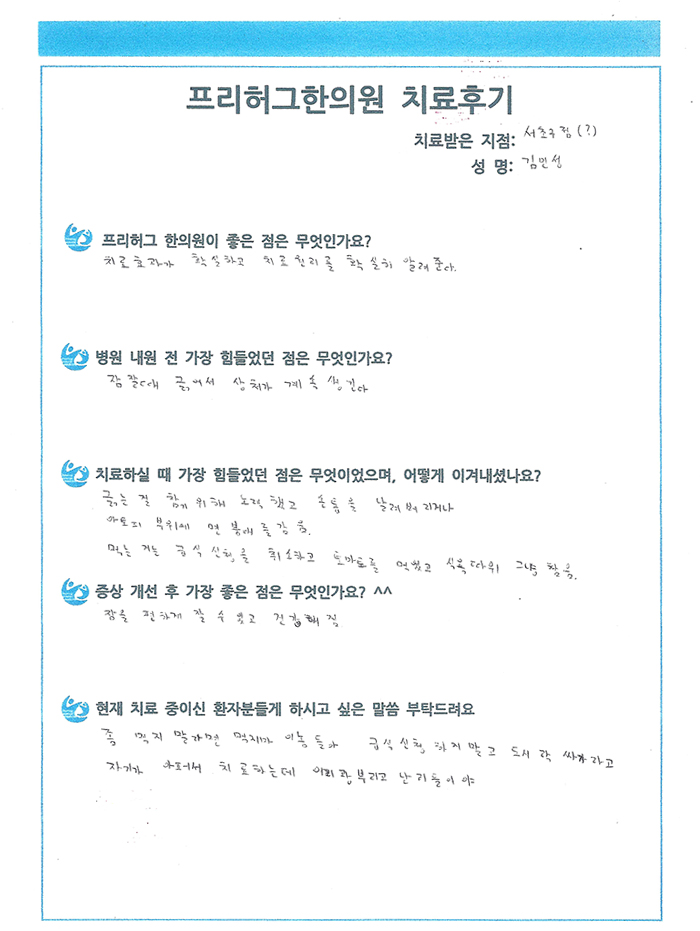 프리허그한의원 치료후기
치료받은 지점: 서초구점(?)
성 명: 김민성
프리허그 한의원이 좋은 점은 무엇인가요?
치료효과가 확실하고 치료원리를 확실히 알려준다.
병원 내원 전 가장 힘들었던 점은 무엇인가요?
잠잘때 긁어서 상처가 계속 생긴다
치료하실 때 가장 힘들었던 점은 무엇이었으며, 어떻게 이겨내셨나요?
긁는 걸 참기 위해 노력했고 손톱을 날려버리거나
아토피 부위에 면붕대를 감음.
먹는 거는 급식신청을 취소하고 도시락을 먹었고 식욕따위 그냥 참음.
증상 개선 후 가장 좋은 점은 무엇인가요? ^^
잠을 편하게 잘 수 있고 건강해짐
현재 치료 중이신 환자분들게 하시고 싶은 말씀 부탁드려요
좀 먹지 말라면 먹지마 이놈들아 급식신청 하지말고 도시락 싸가라고
자기가 아파서 치료하는데 부리고 난리들이야